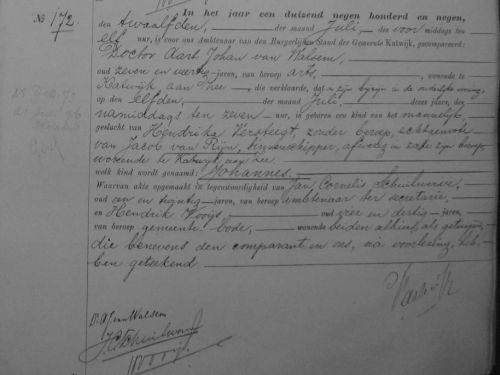 No 172
In het jaar een duizend negen honderd en negen,
den twaalfden, der maand Juli, des voor middags ten
elf ure, is voor ons Ambtenaar van den Burgerlijken Stand der Gemeente Katwijk, gecompareerd:
Doctor Aart Johan van Walsem,
oud zeven en veertig jaren, van beroep arts, wonende te
Katwijk aan Zee, die verklaarde, dat in zijn bijzijn in de ouderlijke woning,
op den elfden, der maand Juli, dezes jaars, des
namiddags ten zeven ure, is geboren een kind van het mannelijk
geslacht van Hendrika Versteegt, zonder beroep, echtgenoote
van Jacob van Rijn, afwezig in zake zijn beroep,
wonende te Katwijk aan Zee.
welk kind wordt genaamd: Johannes.
Waarvan akte opgemaakt in tegenwoordigheid van Jan Cornelis
oud en jaren, van beroep ambtenaar ter secretarie,
en Hendrik Hooijs oud en dertig jaren,
van beroep gemeente bode, wonende beiden alhier, als getuigen,
die benevens den comparant en ons, na voorlezing, heb-
ben geteekend.
Dr. A.J. van Walsem